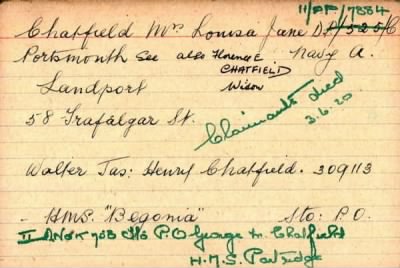 11/PP/7884
Chatfield Mrs Louisa Jane D.P/525/C
Portsmouth See also Florence E Navy A.
CHATFIELD
Landport Widow
58 Trafalgar St.
Claimants died
3.6.20
Walter Jas: Henry Chatfield. 309113
- HMS. "Begonia" Sto: P.O.
II Sto P.O George Chatfield
H.M.S. Partridge